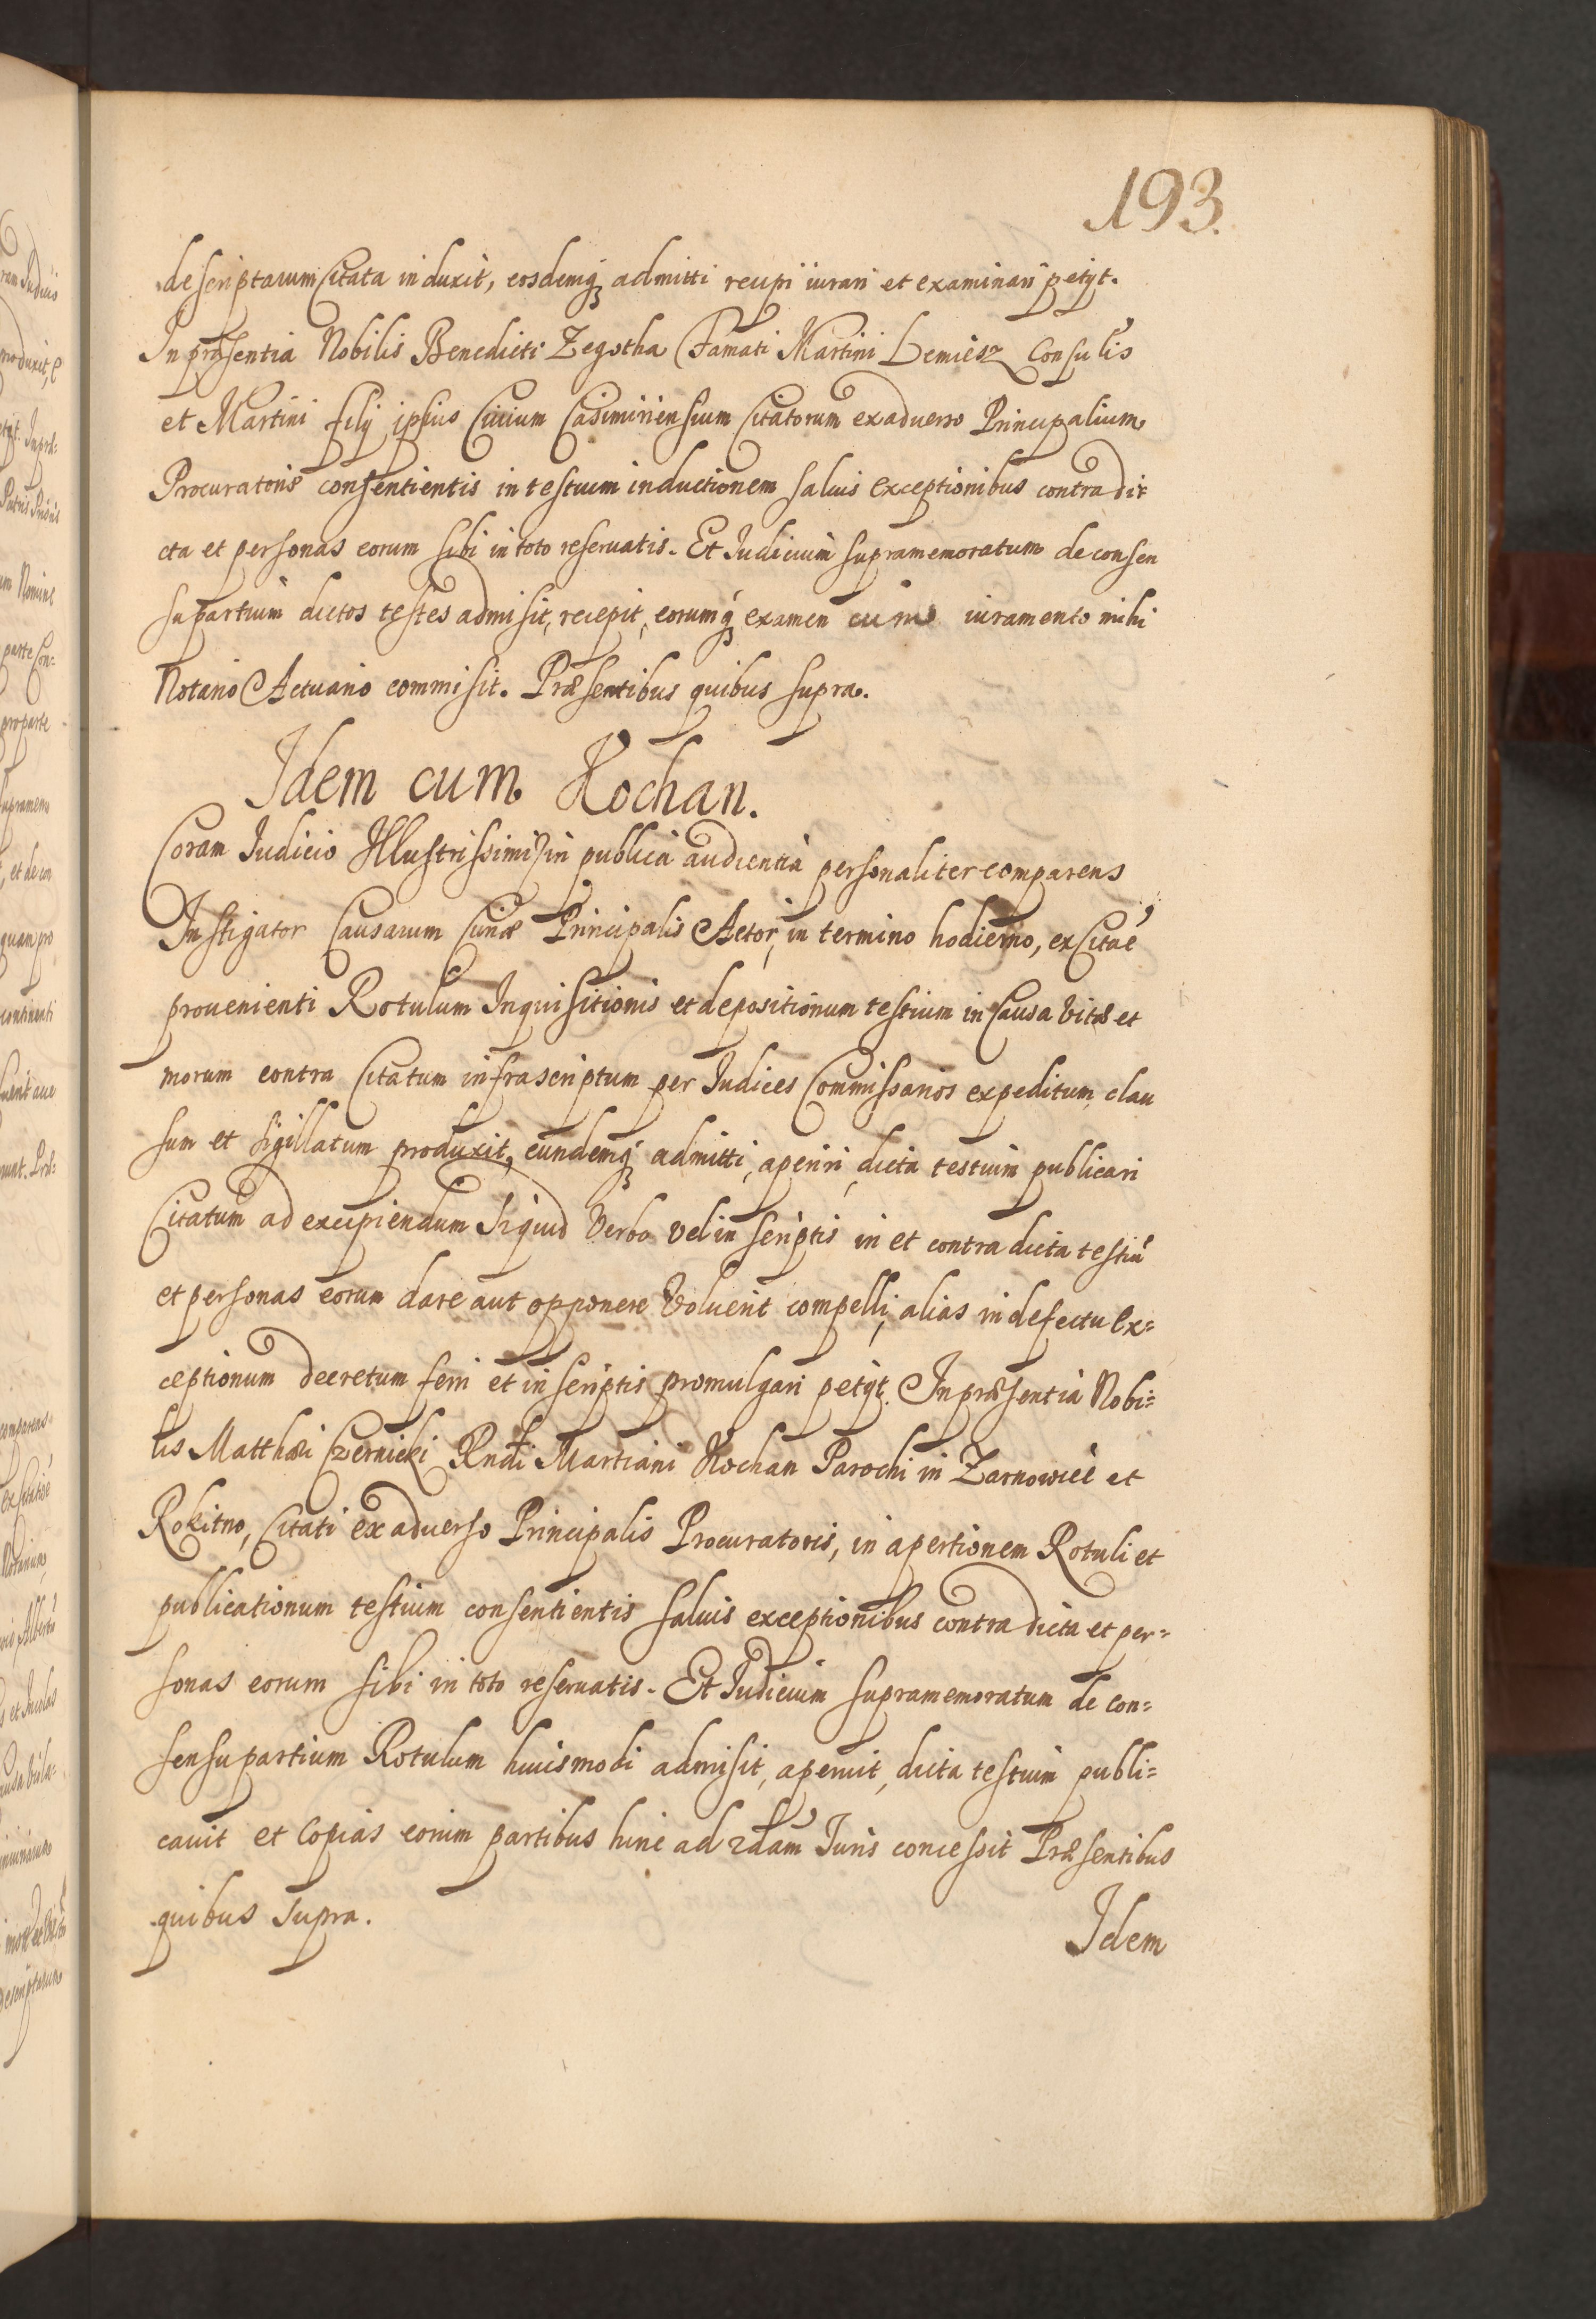 193.
descriptarum Citata induxit, eosdemq; admitti recipi iurari et examinari petijt.
In præsentia Nobilis Benedicti Zegotha Famati Martini Lemiesz Consulis
et Martini filij ipsius Ciuium Casimiriensium Citatorum ex aduerso Principalium
Procuratoris consentientis in testium inductionem saluis exceptionibus contra di=
cta et personas eorum sibi in toto reseruatis. Et Iudicium supramemoratum de consen
su partium dictos testes admisit, recepit, eorumq; examen cum iuramento mihi
Notario Actuario commisit. Præsentibus quibus supra.
Idem cum Kochan.
Coram Iudicio Illustrissimi in publica audientia personaliter comparens
Instigator Causarum Curiæ Principalis Actor, in termino hodierno, ex Citãe
prouenienti Rotulum Inquisitionis et depositionum testium in Causa Vitæ et
morum contra Citatum infrascriptum per Iudices Commissarios expeditum, clau
sum et sigillatum produxit, eundemq; admitti, aperiri, dicta testium publicari
Citatum ad excipiendum siquid Verbo vel in scriptis in et contra dicta testiũ
et personas eorum dare aut opponere Voluerit compelli, alias in defectu ex=
ceptionum decretum ferri et in scriptis promulgari petijt. In præsentia Nobi=
lis Matthæi Czernicki Rndi Martiani Kochan Parochi in Zarnowiec et
Rokitno, Citati ex aduerso Principalis Procuratoris, in apertionem Rotuli et
publicationum testium consentientis saluis exceptionibus contra dicta et per=
sonas eorum sibi in toto reseruatis. Et Iudicium supramemoratum de con=
sensu partium Rotulum huiusmodi admisit, aperuit, dicta testium publi=
cauit et Copias eorum partibus hinc ad 2dam Iuris concessit Præsentibus
quibus supra.
Idem